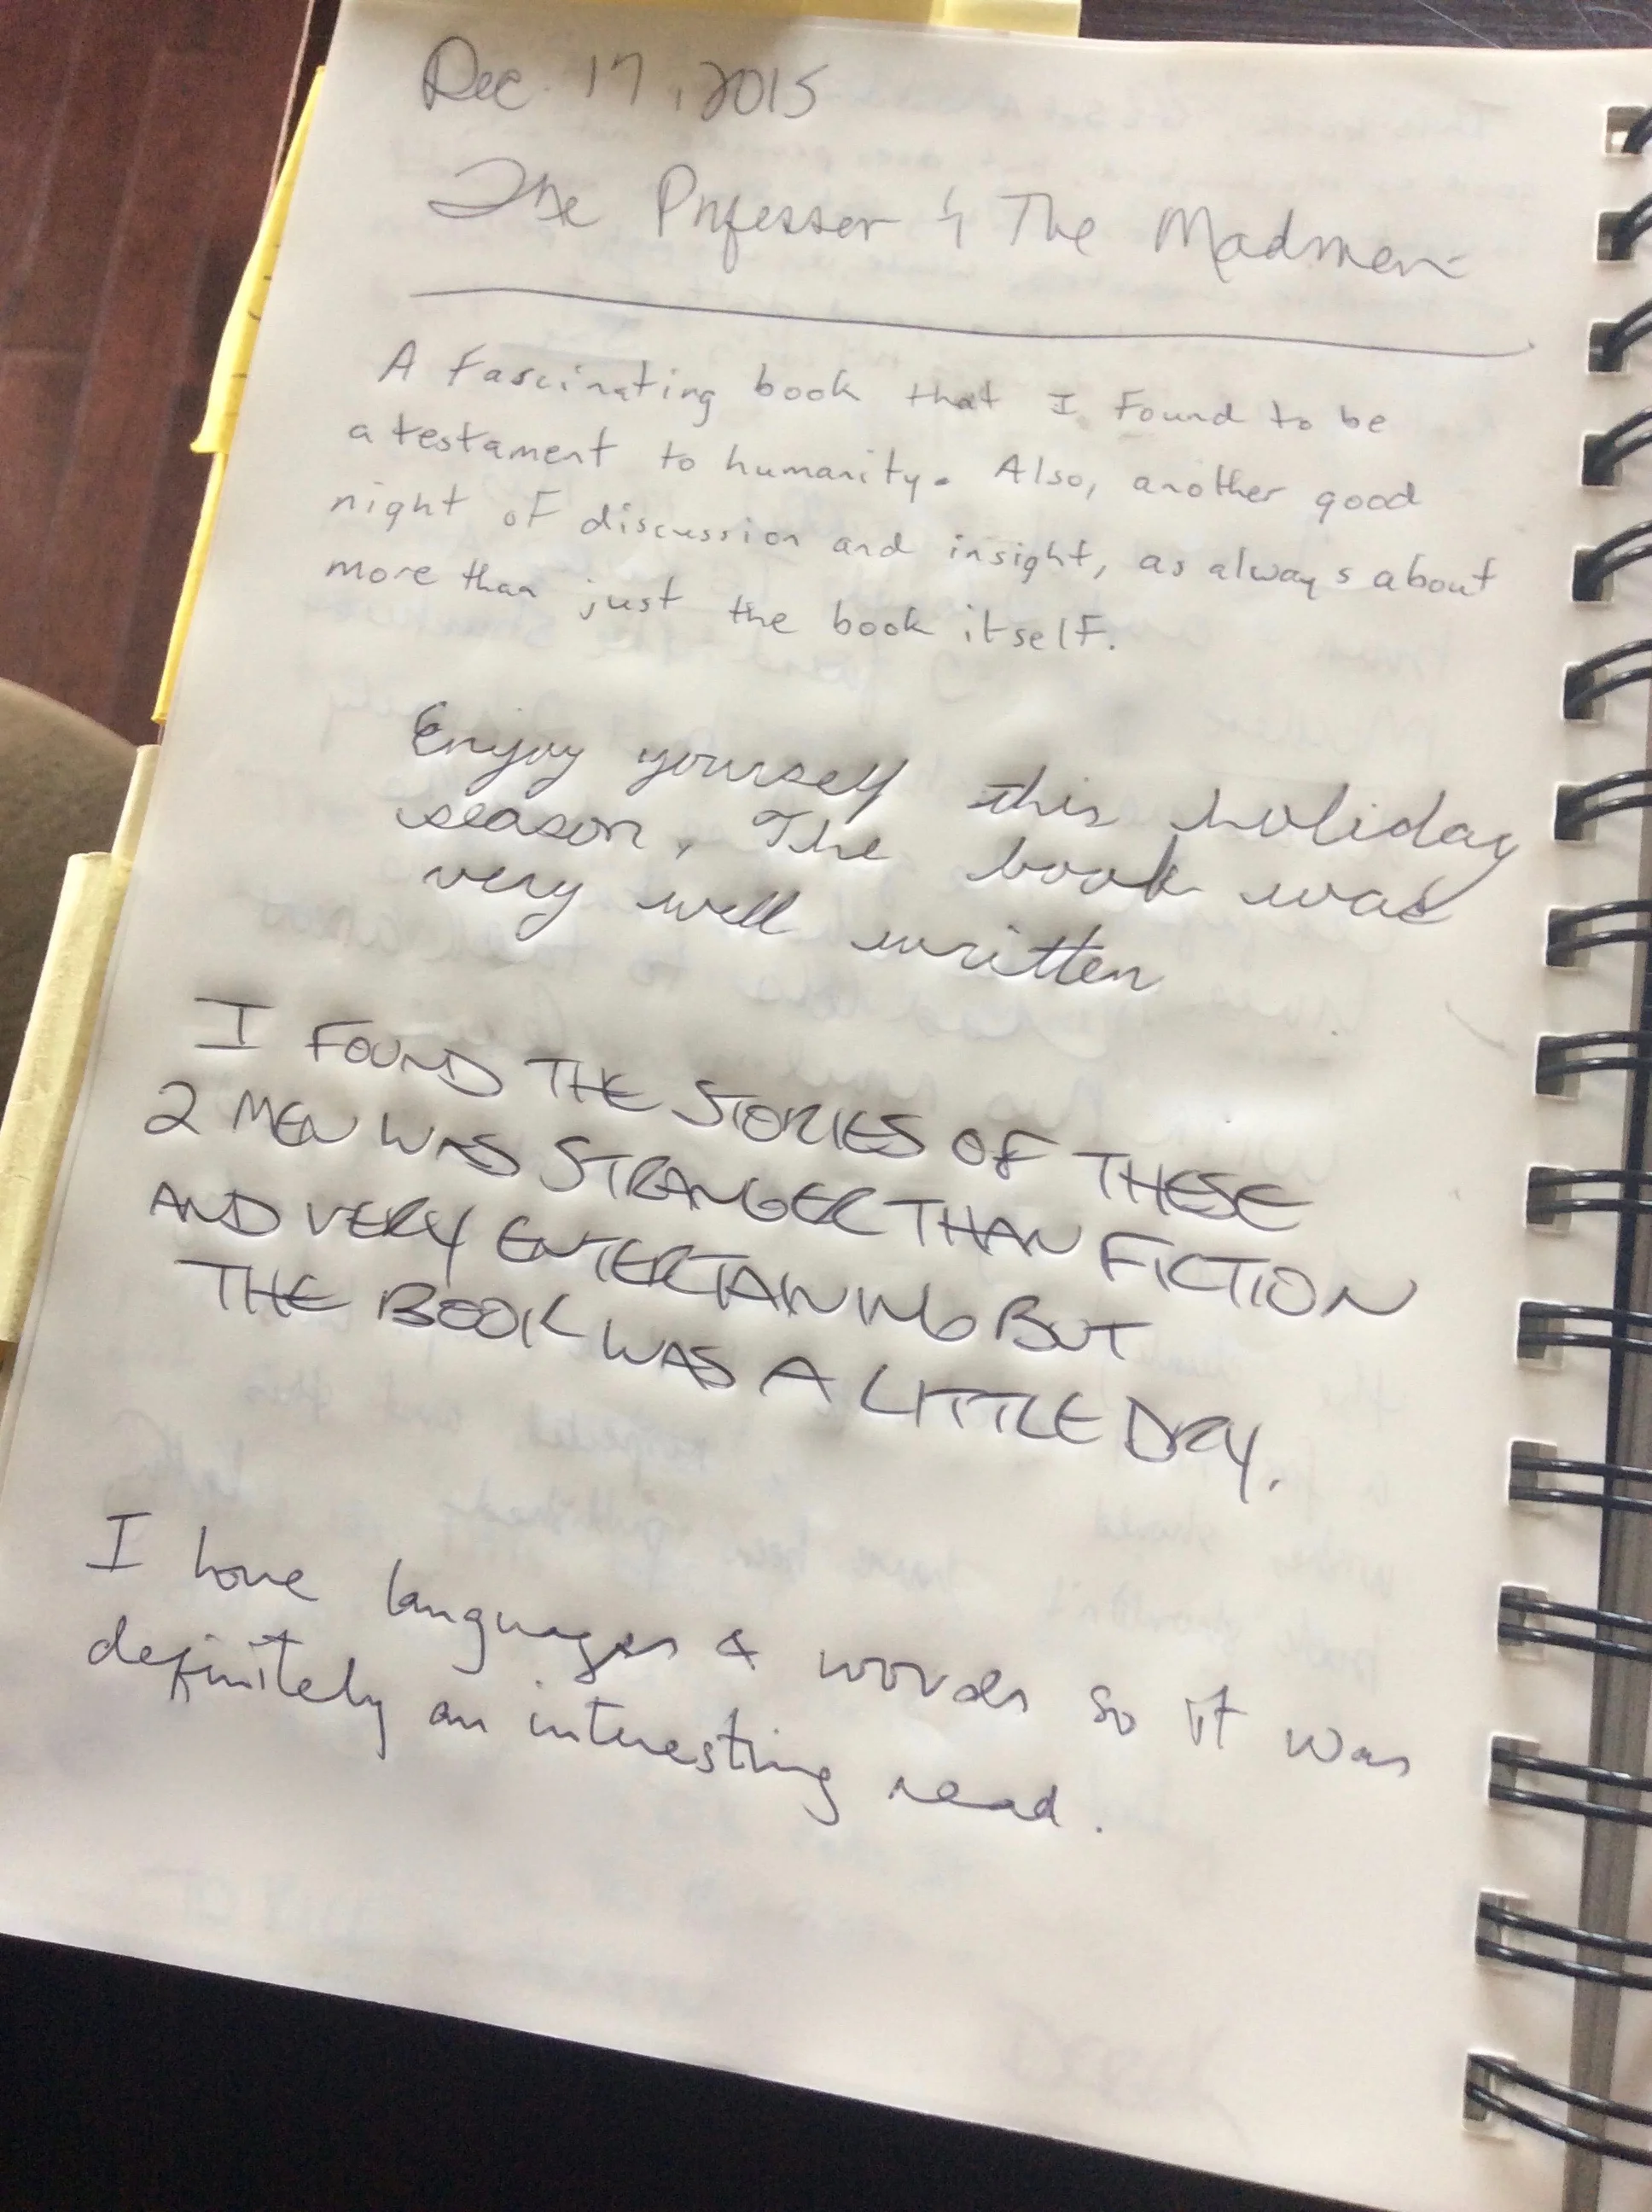 Dec. 17, 2015
The Professor & The Madmen
A fascinating book that I found to be
a testament to humanity. Also, another good
night of discussion and insight, as always about
more than just the book itself.
Enjoy yourself this holiday
season. The book was
very well written
I FOUND THE STORIES OF THESE
2 MEN WAS STRANGER THAN FICTION
AND VERY ENTERTAINING BUT
THE BOOK WAS A LITTLE DRY.
I love languages & words so it was
definitely an interesting read.